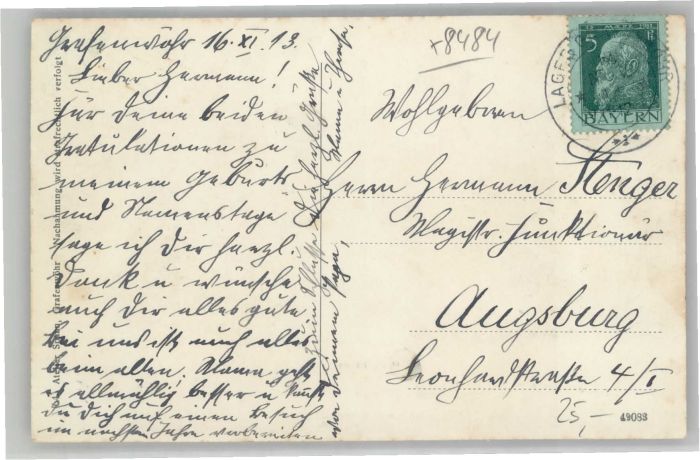 Grafenwöhr 16.XI.13.
Lieber Hermann!
Für deine beiden
Gratulationen zu
meinem Geburts
und Namenstage
sage ich dir herzl.
Dank u wünsche
auch dir alles gute
bei uns ist auch alles
beim alten. Mama geht
es allmählig besser u
du dich auf einen Besuch
im nächsten Jahre vorbereiten
zum Schlusse die herzl. Grüße
von deinem
Mama u
+8484
Wohlgeboren
Herrn Hermann Stenger
Magistr. Funktionär
Augsburg
Leonhardstraße 4/I
25,-
49083
5
BAYERN
LAGER
Nachahmung wird strafrechtlich verfolgt
Grafenwöhr